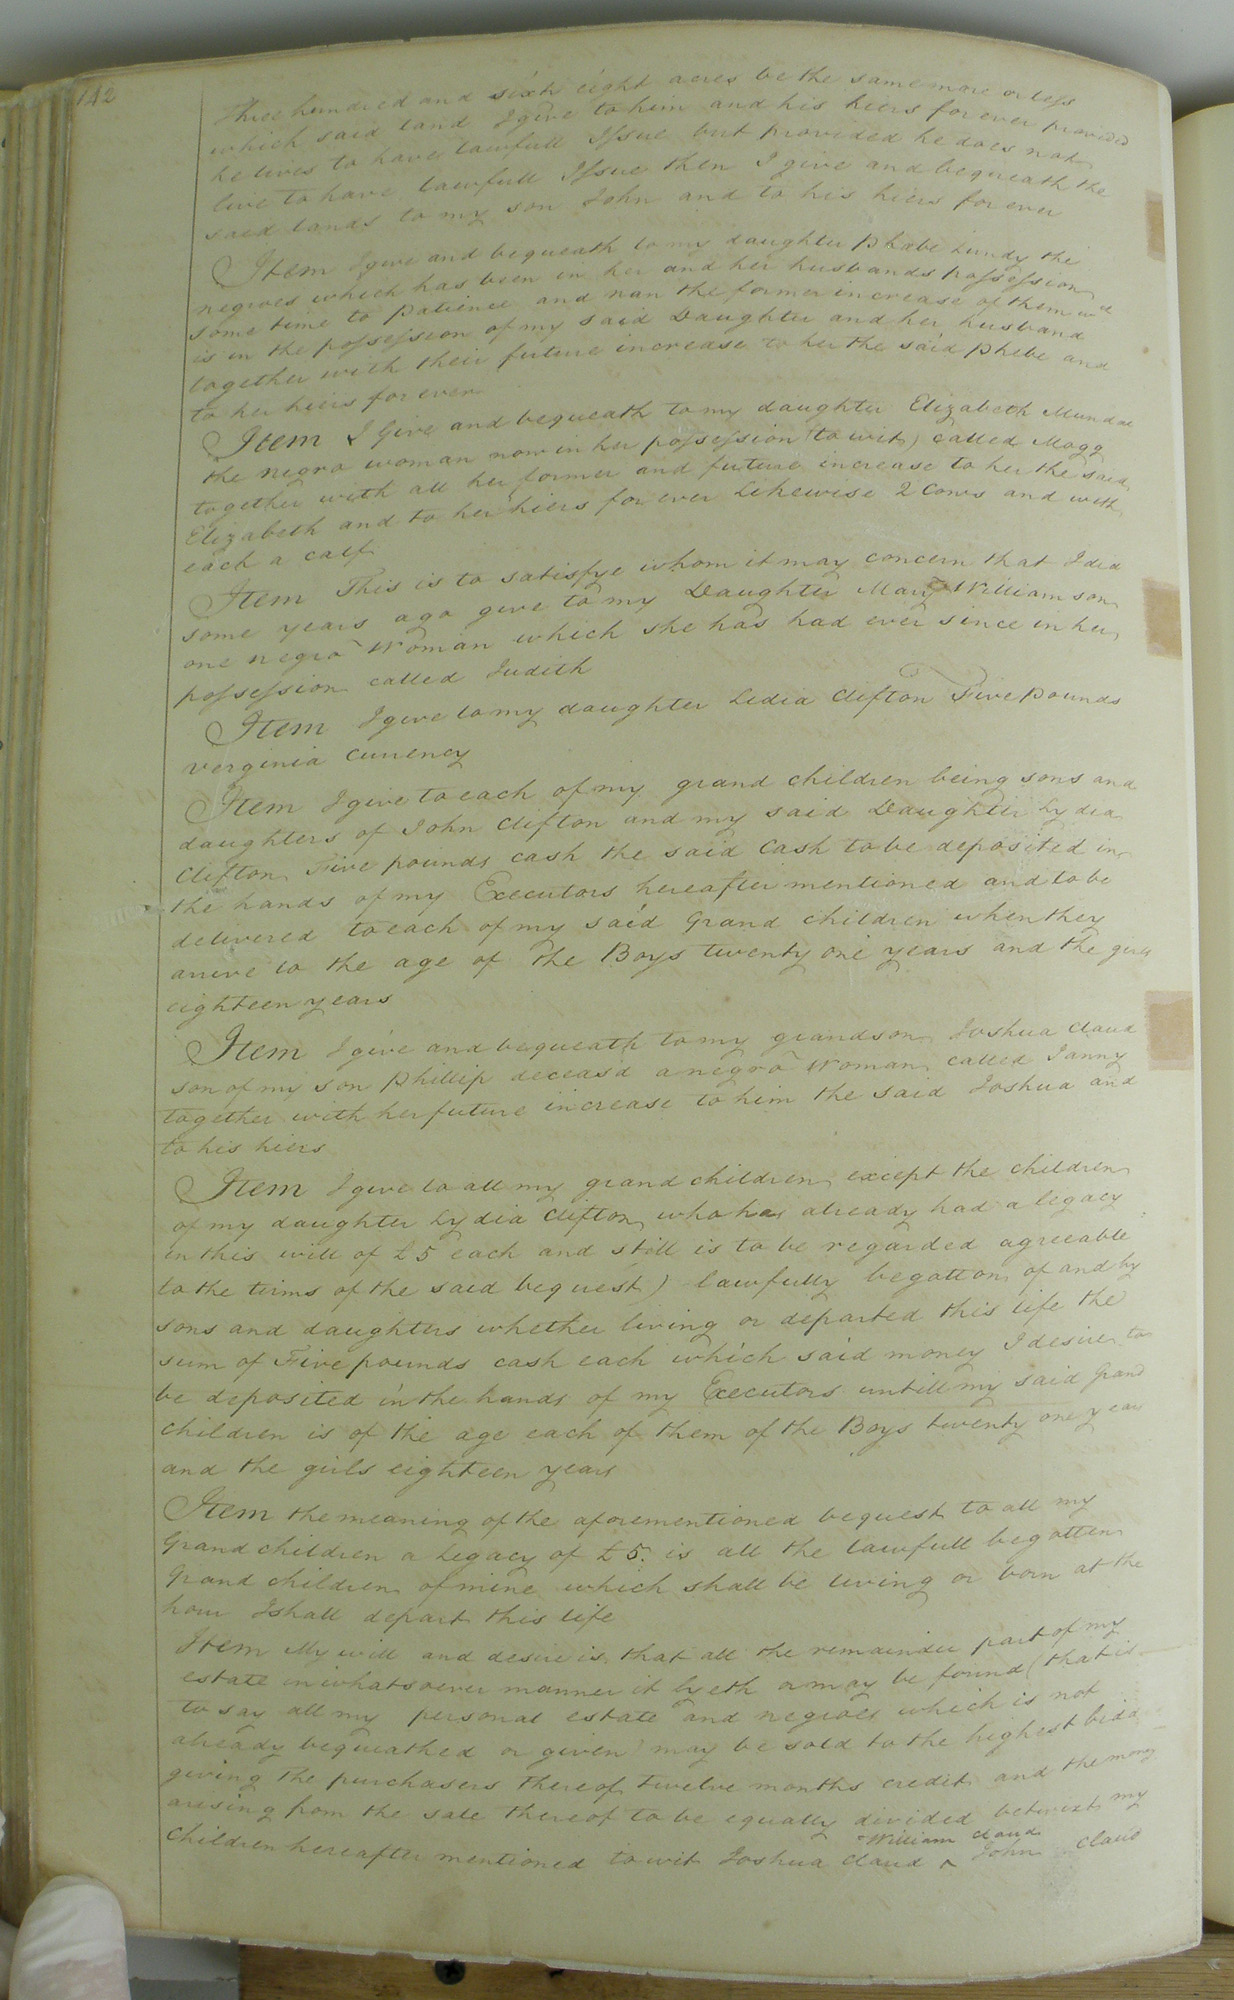 142
Three hundred and sixty eight acres be the same more or less
which said land I give to him and his hiers for ever provided
he lives to have lawfull Issue but provided he does not
live to have lawfull Issue then I give and bequeath the
said lands to my son John and to his hiers for ever
Item I give and bequeath to my daughter Phebe Lundy the
negroes which has been in her and her husbands possession
some time to patience and nan the former increase of them wch
is in the possession of my said Daughter and her husband
together with their future increase to her the said Phebe and
to her hiers for ever
Item I Give and bequeath to my daughter Elizabeth Mundae
the negro woman now in her possession (to wit) called Magg
together with all her former and future increase to her the said
Elizabeth and to her hiers for ever Likewise 2 Cows and with
each a calf
Item This is to satisfye whom it may concern that I did
some years ago give to my Daughter Mary Williamson
one negro Woman which she has had ever since in her
possession called Judith
Item I give to my daughter Lidia Clifton Five Pounds
verginia currency
Item I give to each of my grand children being sons and
daughters of John Clifton and my said Daughter Lydia
Clifton Five pounds cash the said Cash to be deposited in
the hands of my Executors hereafter mentioned and to be
delivered to each of my said Grand children when they
arive to the age of the Boys twenty one years and the girls
eighteen years
Item I give and bequeath to my grandson Joshua Claud
son of my son Phillip deceasd a negro Woman called Janny
together with her future increase to him the said Joshua and
to his hiers
Item I give to all my grand children except the children
of my daughter Lydia Clifton who has already had a legacy
in this will of £5 each and still is to be regarded agreeable
to the tirms of the said bequest) lawfully begotton of and by
sons and daughters whether living or departed this life the
sum of Five pounds cash each which said money I desire to
be deposited in the hands of my Executors untill my said Grand
children is of the age each of them of the Boys twenty one year
and the girls eighteen years
Item the meaning of the aforementioned bequest to all my
Grand children a Legacy of £5. is all the lawfull begotten
Grand children of mine which shall be living or born at the
hour I shall depart this life
Item My will and desire is that all the remainder part of my
estate in whatsoever manner it lyeth or may be found (that is
to say all my personal estate and negroes which is not
already bequeathed or given) may be sold to the highest bidd
giving the purchasers thereof twelve months credit and the money
arising from the sale thereof to be equally divided betwixt my
William Claud
children hereafter mentioned to wit Joshua Claud ^ John Claud